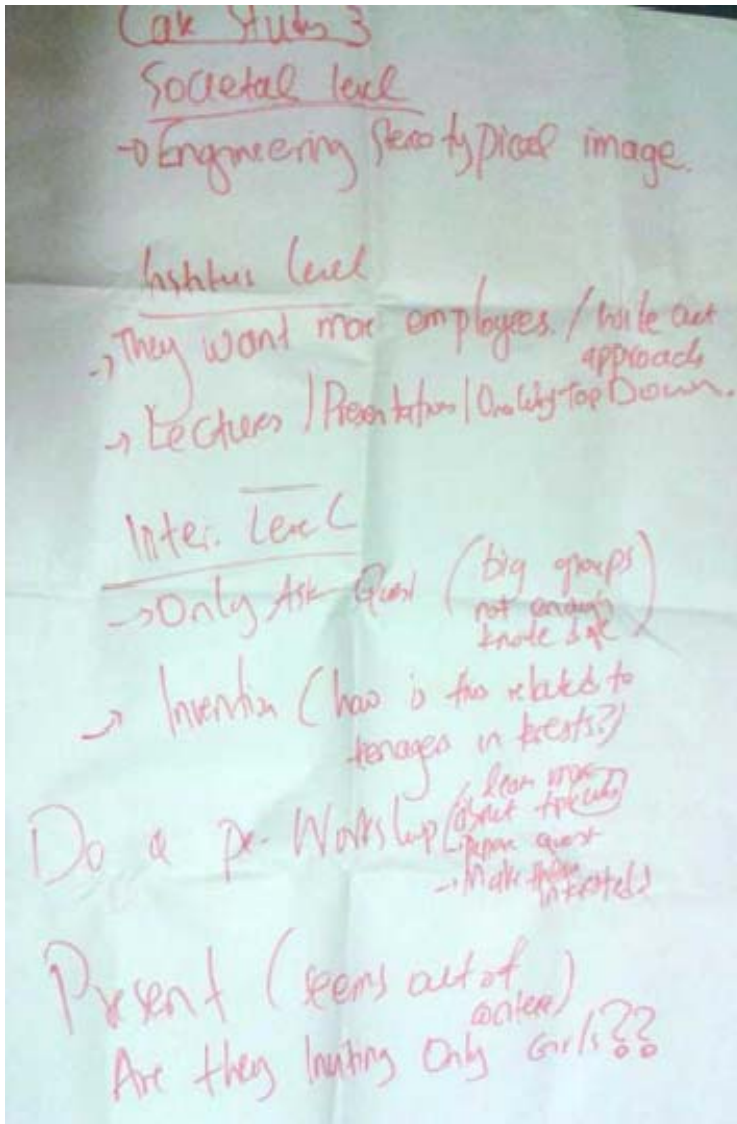 Societal level
→ Engineering stereotypical image.
level
→ They want more employees. /
approach
→ Lectures / Presentations / One Way-Top Down.
Inter. Level
→ Only Ask Quest (big groups
not enough
Invention (how is this related to
teenagers interests?)
Do a pre-Workshop
learn more
about
prepare quest
→ Make them
interested)
Present (seems out of
context)
Are they Inviting Only Girls??